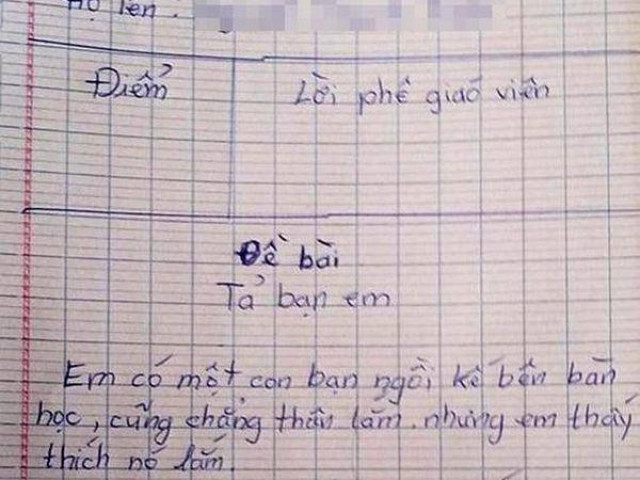 Họ tên.
Điểm
Lời phê giáo viên
Đề bài
Tả bạn em
Em có một con bạn ngồi kế bên bàn
học, cũng chẳng thân lắm, nhưng em thấy
thích nó lắm.